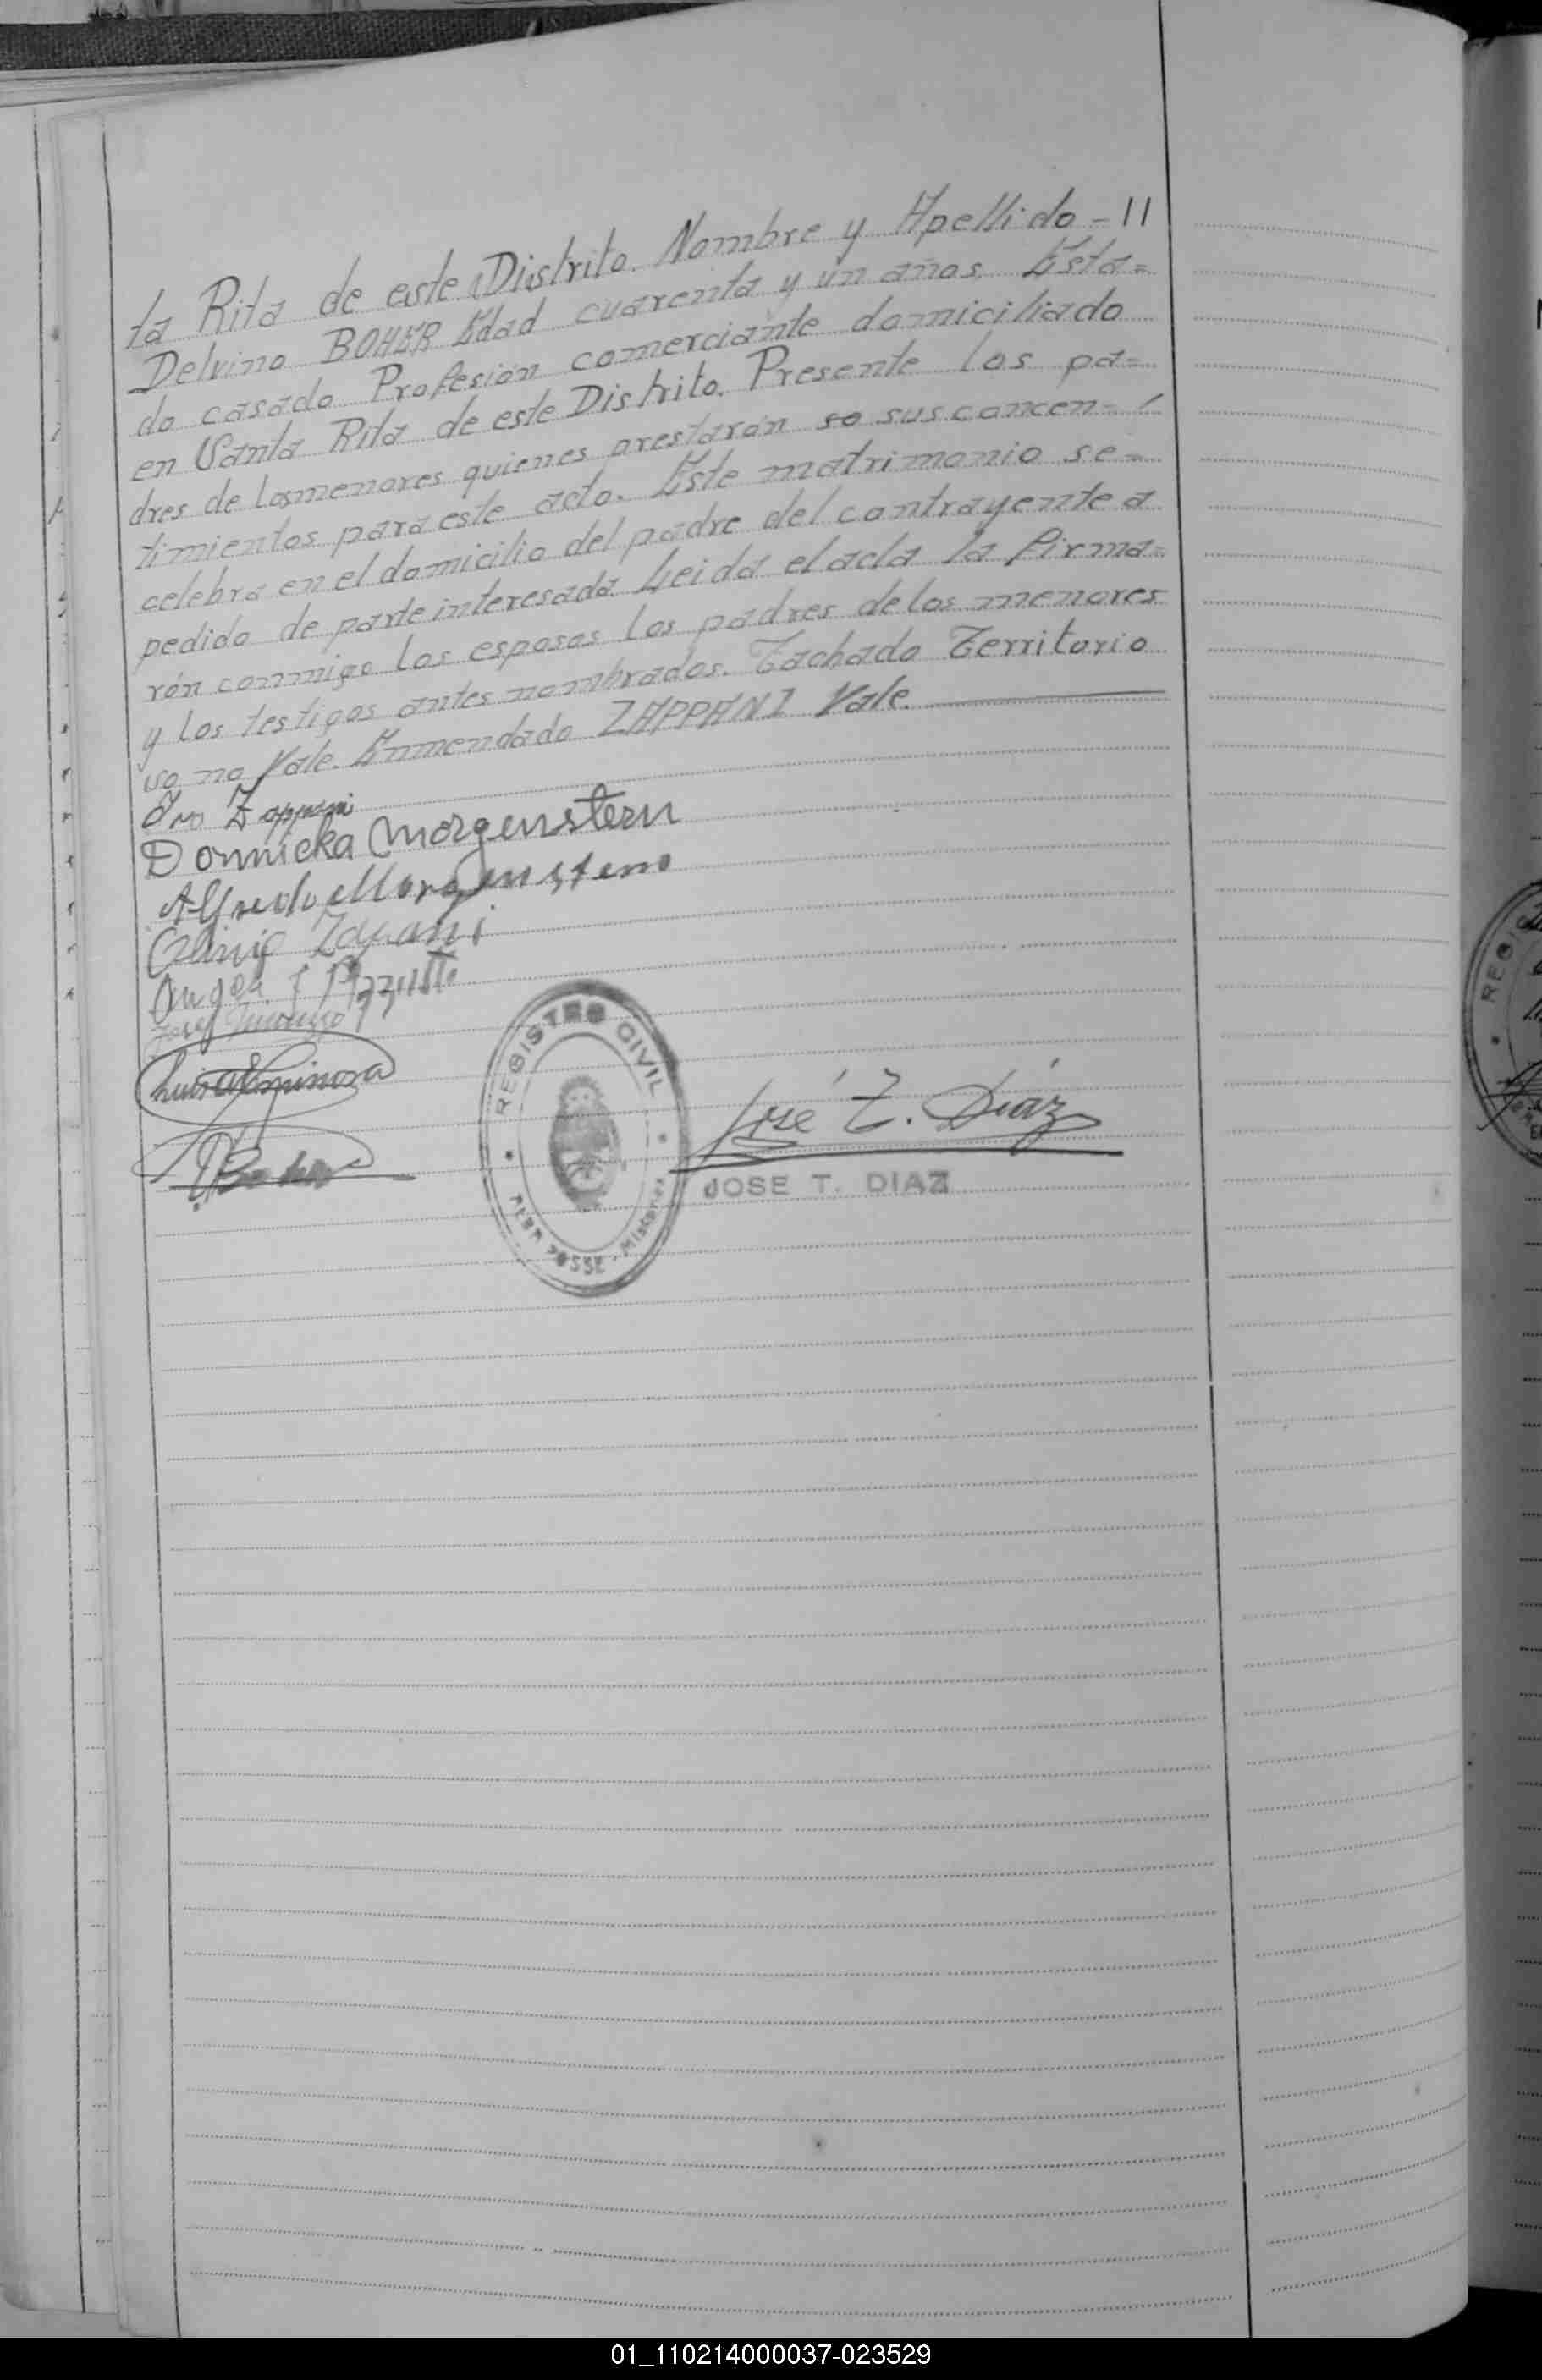 ta Rita de este Distrito. Nombre y Apellido - 11
Delvino BOHER Edad cuarenta y un años, Esta=
do casado Profesión comerciante domiciliado
en Santa Rita de este Distrito. Presente los pa=
dres de los menores quienes prestarón so sus concen-
timientos para este acto. Este matrimonio se=
celebra en el domicilio del padre del contrayente a
pedido de parte interesada. Leida el acta la firma=
rón conmigo los esposos los padres de los menores
y los testigos antes nombrados. Tachado Territorio
so no Vale. Enmendado ZAPPANI Vale.
Zappani
Domnicka Morgenstern
Alfredo Morgenstern
José T. Diaz
JOSE T. DIAZ
REGISTRO CIVIL
ALBA POSSE - Misiones
REGIS
01_110214000037-023529